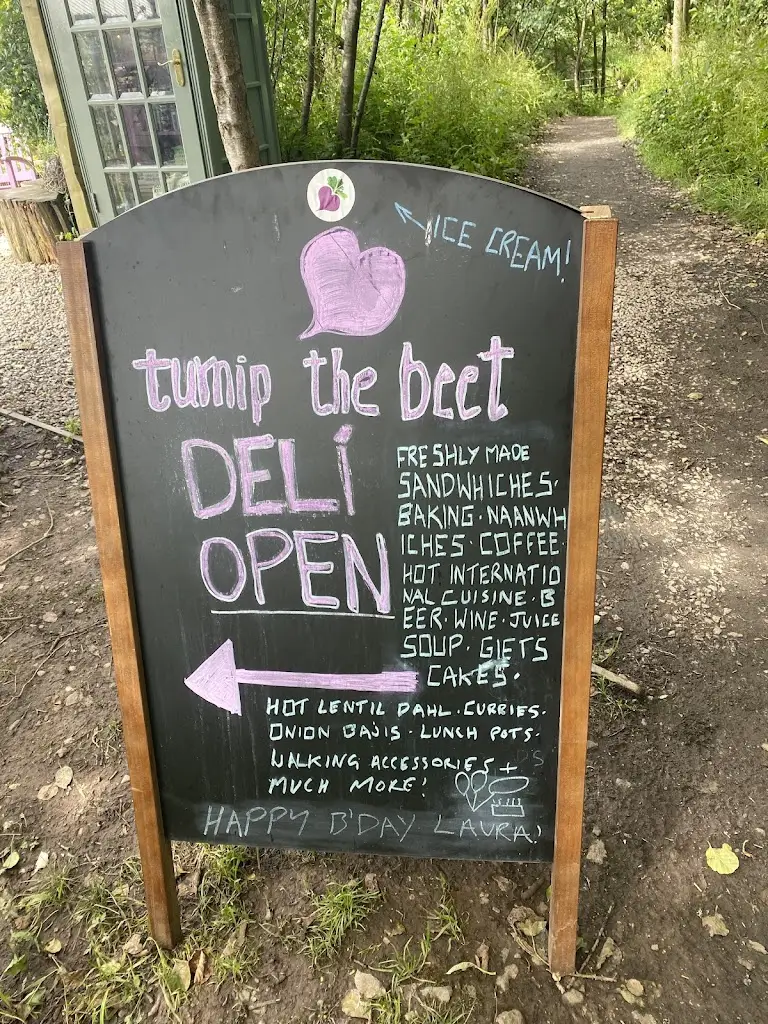 ICE CREAM!
turnip the beet
DELI
OPEN
FRESHLY MADE
SANDWHICHES.
BAKING. NAANWH
ICHES. COFFEE.
HOT INTERNATIO
NAL CUISINE. B
EER. WINE. JUICE
SOUP. GIFTS
CAKES.
HOT LENTIL DAHL. CURRIES.
ONION BAJIS. LUNCH POTS.
WALKING ACCESSORIES +
MUCH MORE!
HAPPY B'DAY LAURA!